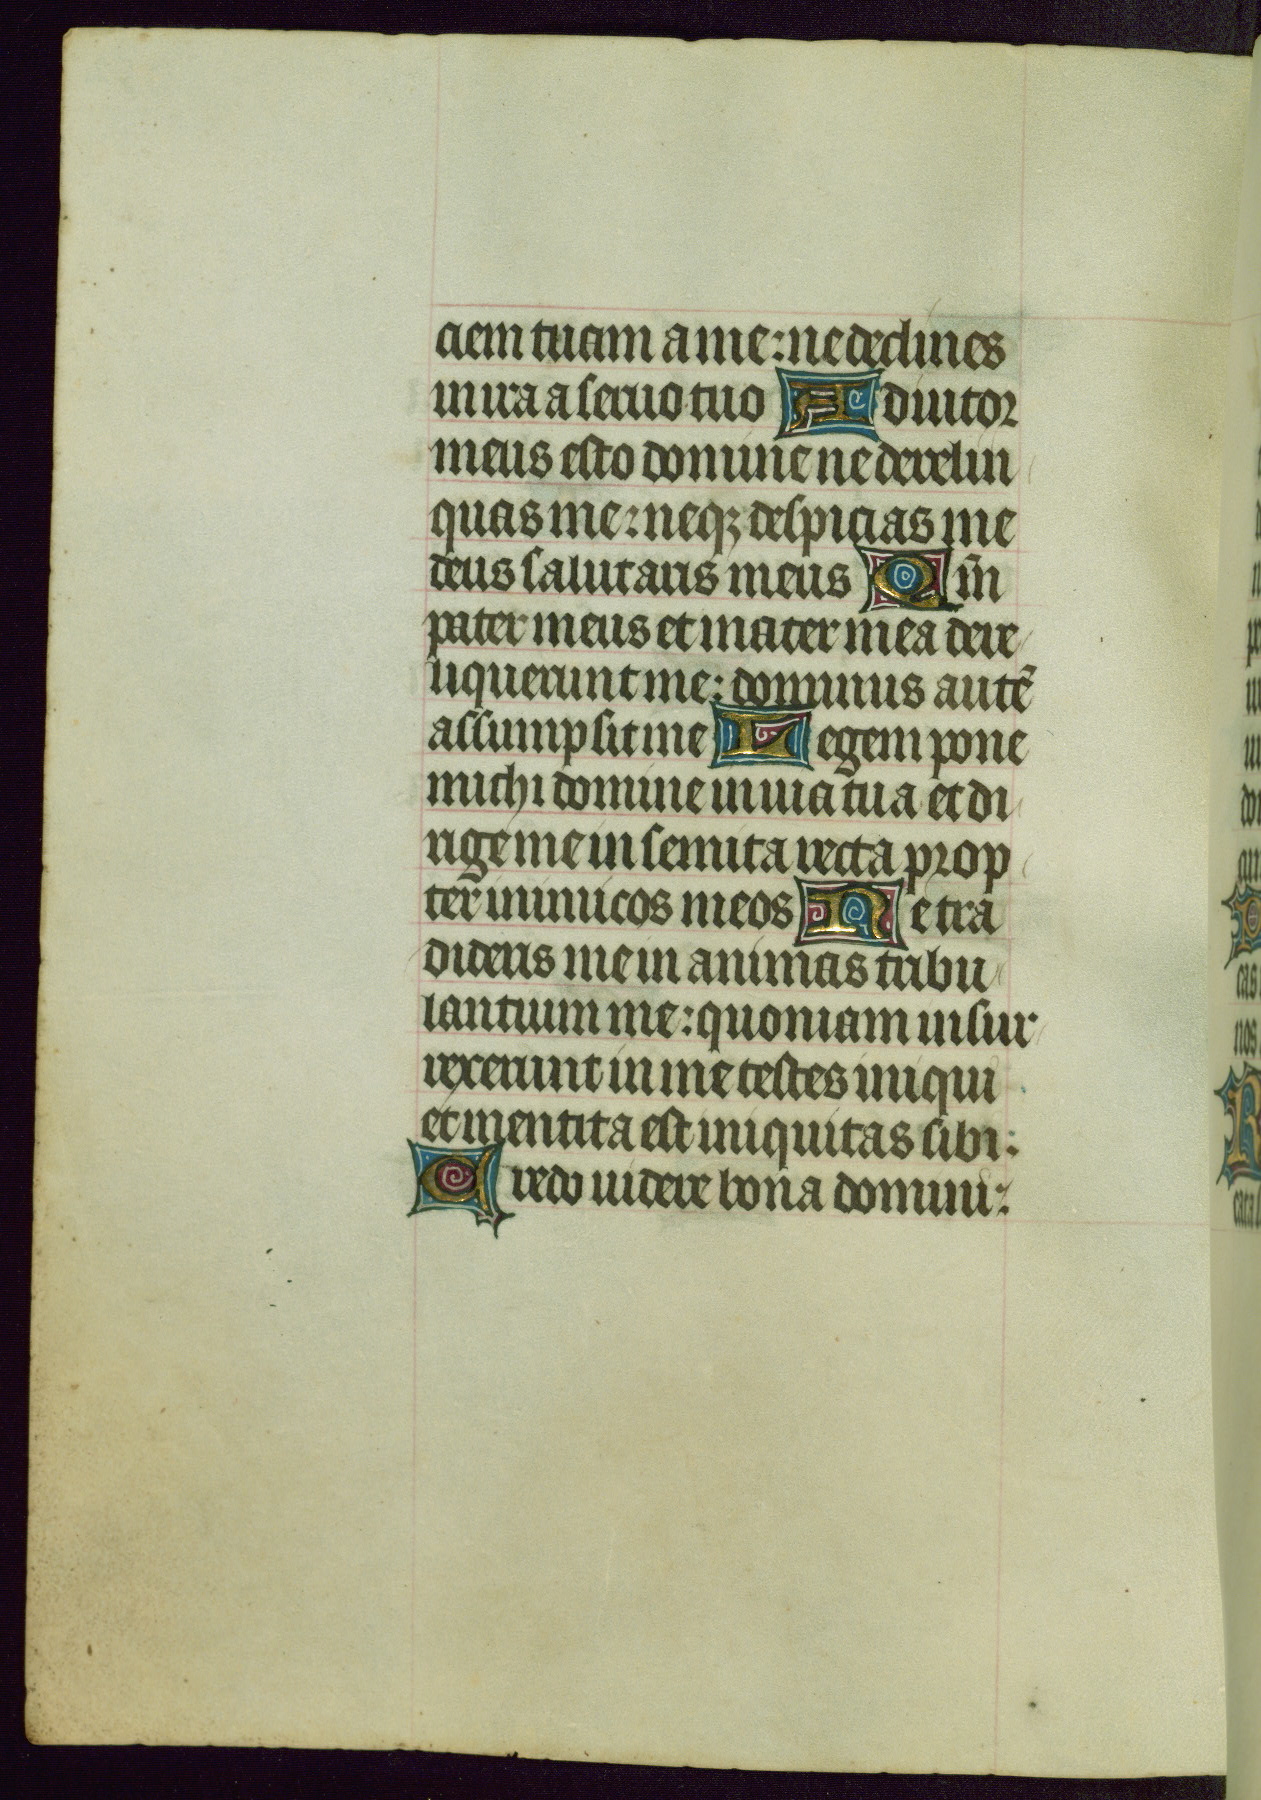 ciem tuam a me: ne declines
in ira a seruo tuo Adiutor
meus esto domine ne derelin
quas me: neqȝ despicias me
deus salutaris meus Qm̄
pater meus et mater mea dere
liquerunt me: dominus autē
assumpsit me Legem pone
michi domine in uia tua et di
rige me in semita recta prop
ter inimicos meos Ne tra
dideris me in animas tribu
lantium me: quoniam insur
rexerunt in me testes iniqui
et mentita est iniquitas sibi:
Credo uidere bona domini: